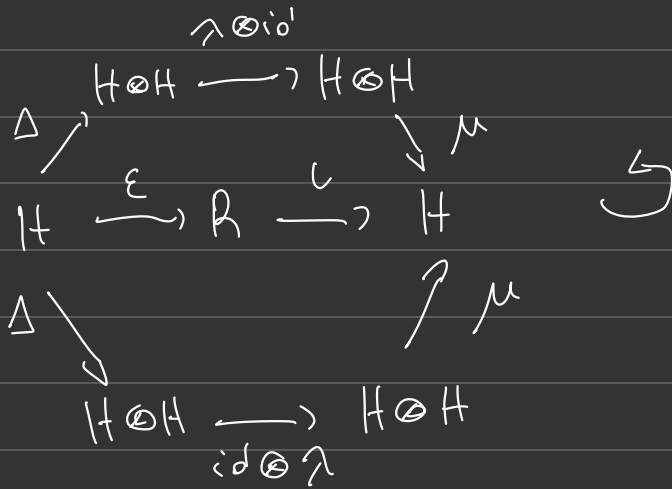 λ⊗id
H⊗H → H⊗H
Δ ↗ ↘ μ
H ε→ R ι→ H ↺
Δ ↘ ↗ μ
H⊗H → H⊗H
id⊗λ